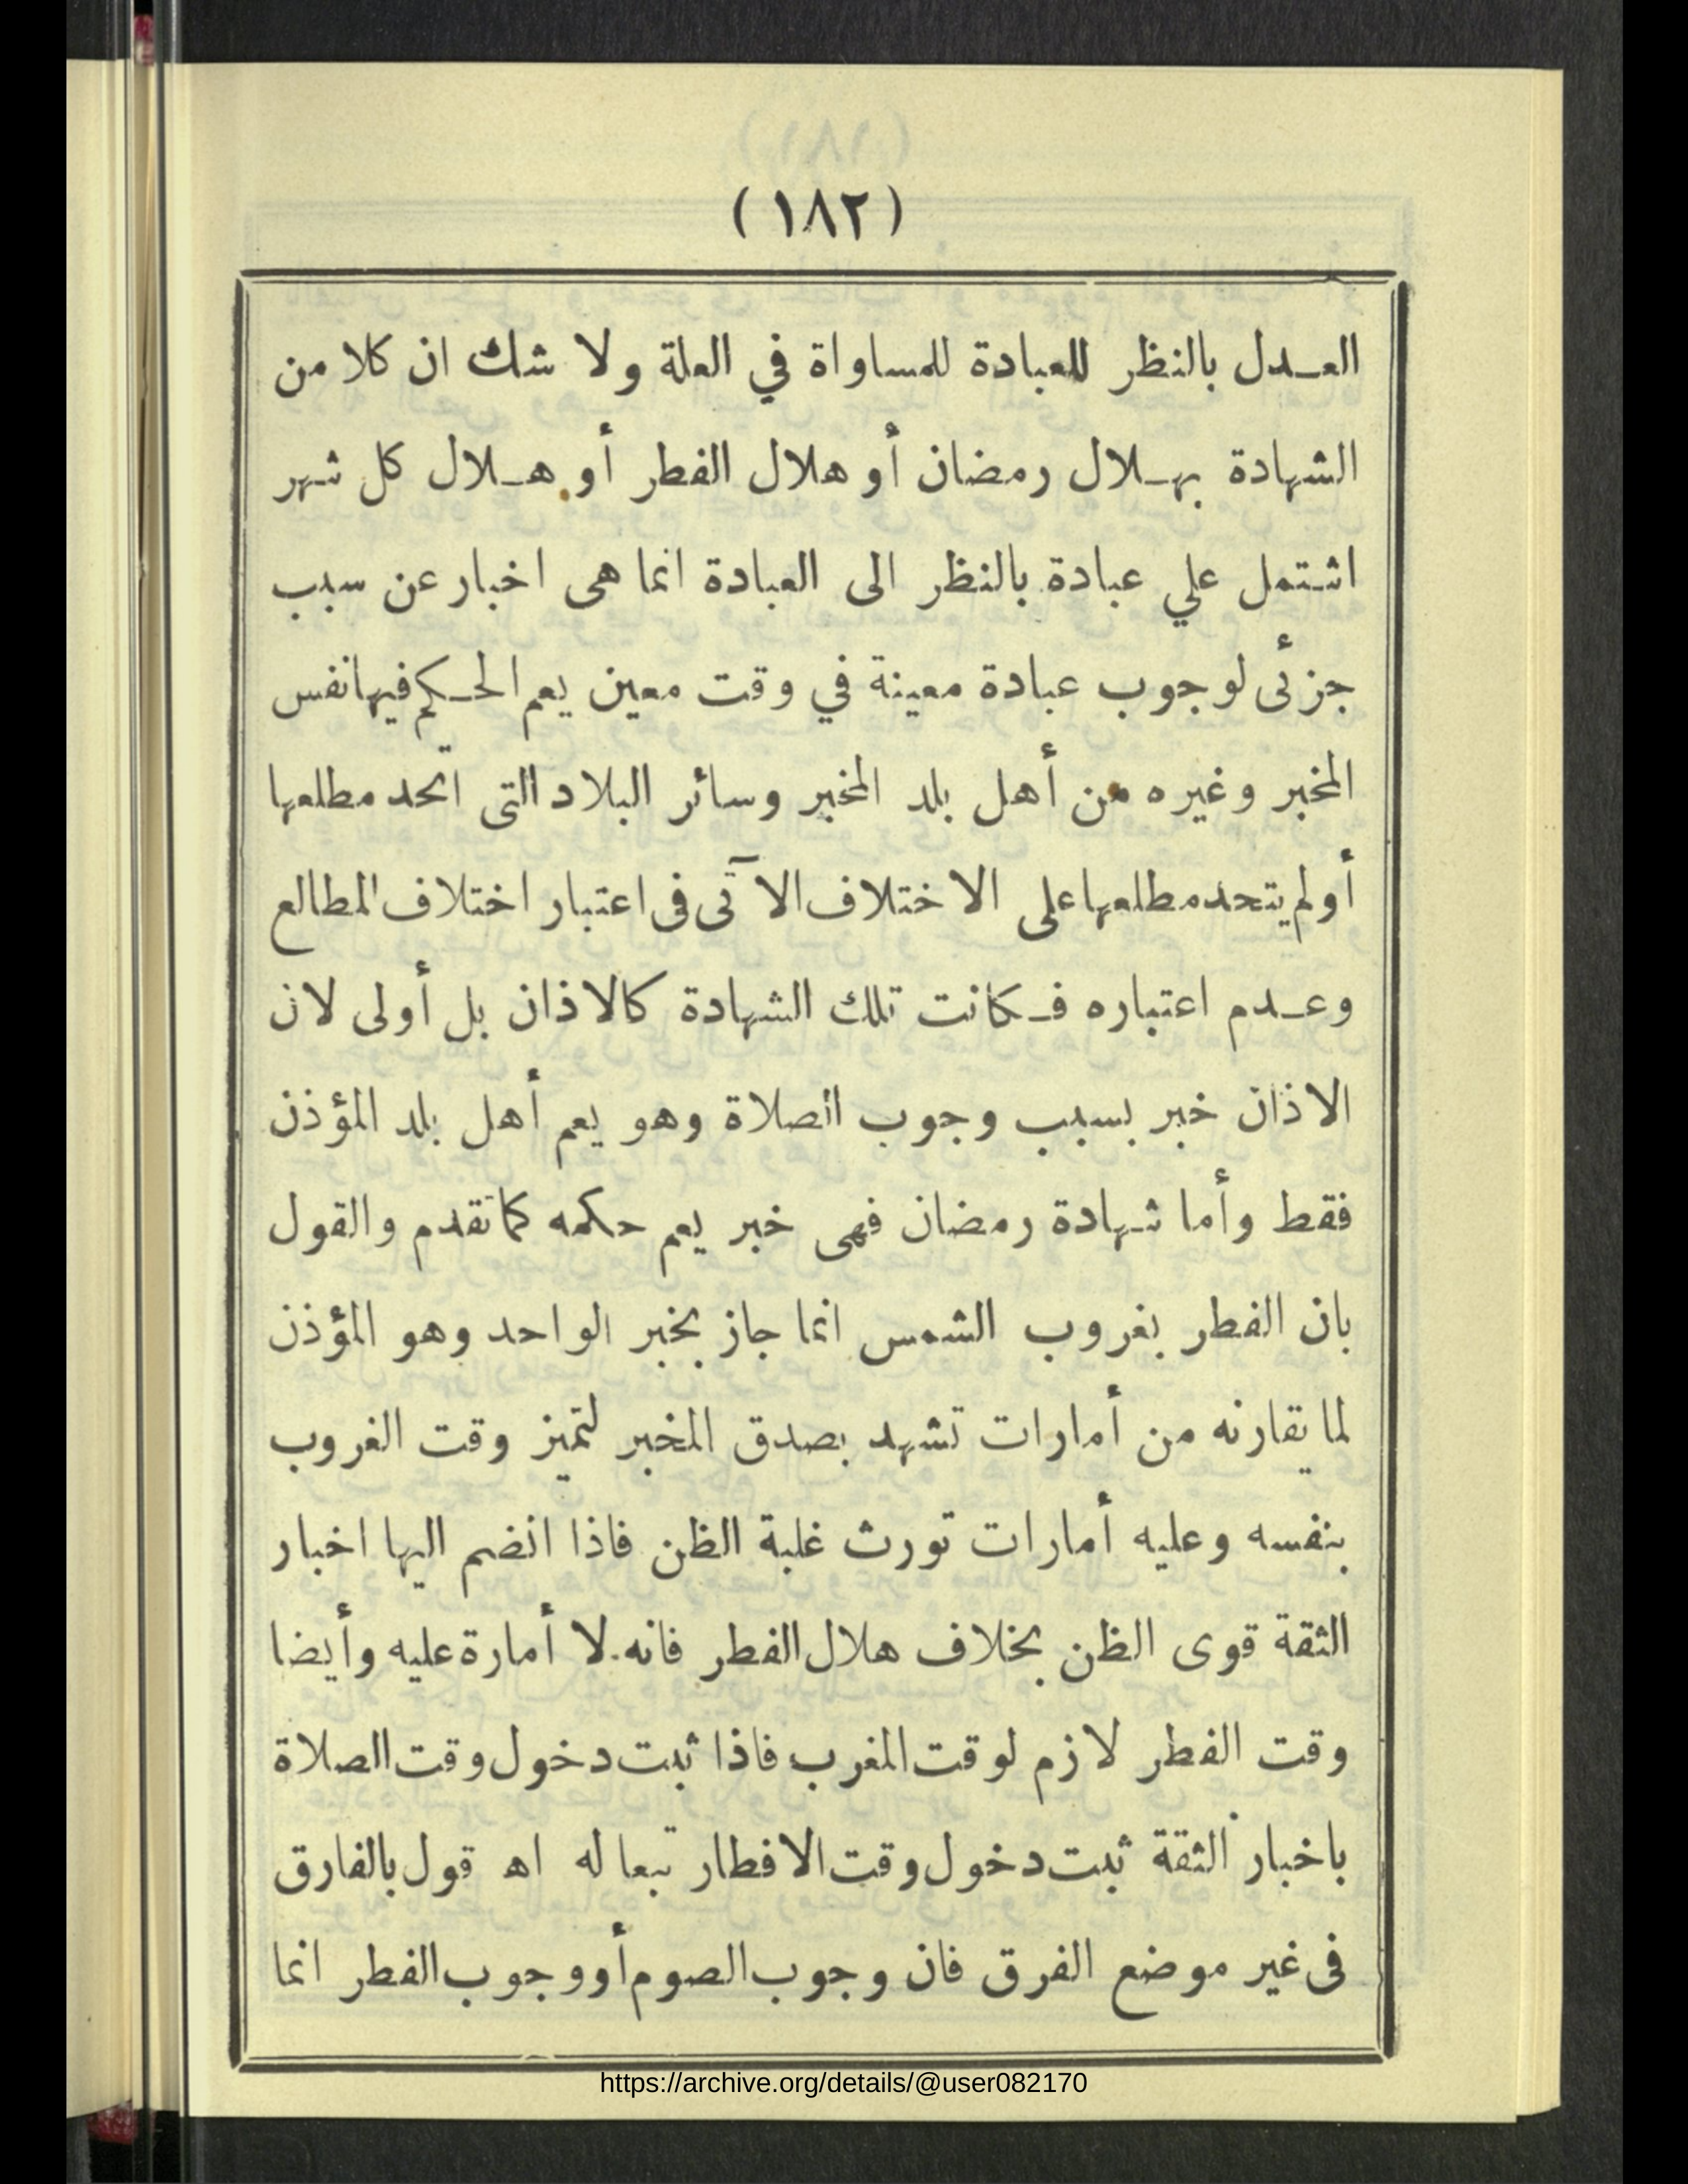 (١٨٢)
العدل بالنظر للعبادة للمساواة في العلة ولا شك ان كلا من
الشهادة بهلال رمضان أو هلال الفطر أو هلال كل شهر
اشتمل علي عبادة بالنظر الى العبادة انما هى اخبار عن سبب
جزئى لوجوب عبادة معينة في وقت معين يعم الحكم فيها نفس
المخبر وغيره من أهل بلد المخبر وسائر البلاد التى اتحد مطلعها
أو لم يتحد مطلعها على الاختلاف الآتى فى اعتبار اختلاف المطالع
وعدم اعتباره فكانت تلك الشهادة كالاذان بل أولى لان
الاذان خبر بسبب وجوب الصلاة وهو يعم أهل بلد المؤذن
فقط وأما شهادة رمضان فهى خبر يعم حكمه كما تقدم والقول
بان الفطر بغروب الشمس انما جاز بخبر الواحد وهو المؤذن
لما يقارنه من أمارات تشهد بصدق المخبر لتميز وقت الغروب
بنفسه وعليه أمارات تورث غلبة الظن فاذا انضم اليها اخبار
الثقة قوى الظن بخلاف هلال الفطر فانه لا أمارة عليه وأيضا
وقت الفطر لازم لوقت المغرب فاذا ثبت دخول وقت الصلاة
باخبار الثقة ثبت دخول وقت الافطار تبعا له اه قول بالفارق
فى غير موضع الفرق فان وجوب الصوم أو وجوب الفطر انما
https://archive.org/details/@user082170